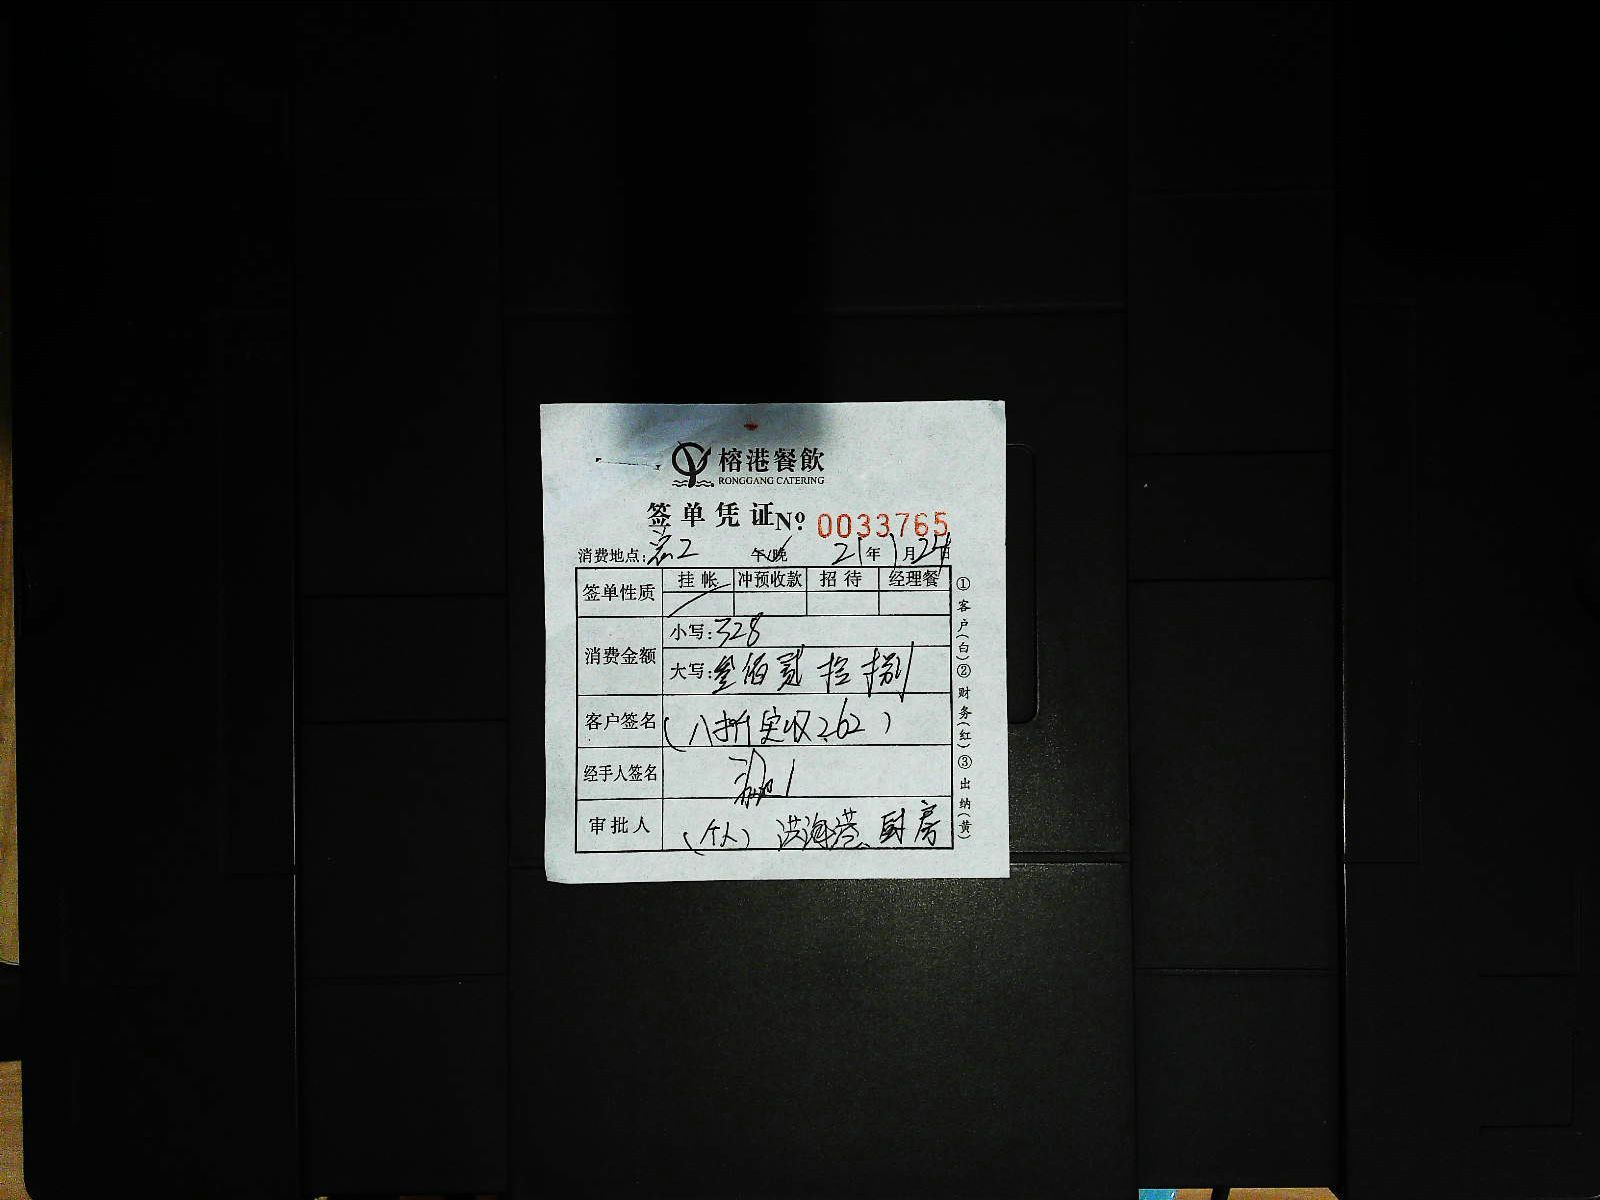 榕港餐飲
RONGGANG CATERING
签单凭证 No 0033765
消费地点: 午/晚 21年1月24日
签单性质 挂帐 冲预收款 招待 经理餐
消费金额 小写:328
大写:叁佰贰拾捌
客户签名 (八折实收262)
经手人签名
审批人 (个人) 洪海港 厨房
①客户(白)②财务(红)③出纳(黄)